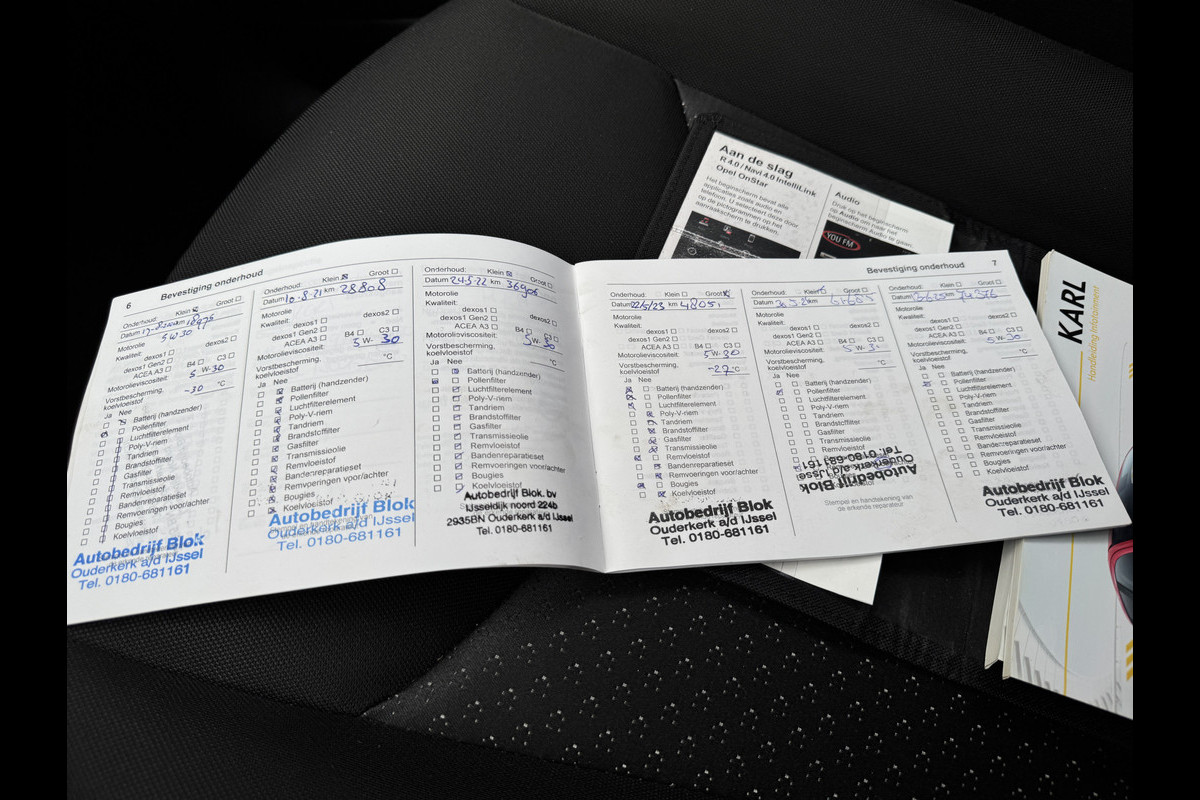 Aan de slag
R 4.0 / Navi 4.0 IntelliLink
Opel OnStar
Het beginscherm bevat alle
applicaties zoals audio en
telefoon. U selecteert deze door
op de pictogrammen op het
aanraakscherm te drukken.
Audio
Druk op het beginscherm
op Audio om naar het
beginscherm Audio te gaan.
YOU FM
KARL
Handleiding Infotainment
6
Bevestiging onderhoud
Onderhoud: Klein Groot
Datum km
Motorolie 5W30
Kwaliteit:
dexos1 dexos2
dexos1 Gen2
ACEA A3 B4 C3
Motorolieviscositeit: 5 W- 30
Vorstbescherming,
koelvloeistof -30 °C
Ja Nee
Batterij (handzender)
Pollenfilter
Luchtfilterelement
Poly-V-riem
Tandriem
Brandstoffilter
Gasfilter
Transmissieolie
Remvloeistof
Bandenreparatieset
Remvoeringen voor/achter
Bougies
Koelvloeistof
Autobedrijf Blok
Ouderkerk a/d IJssel
Tel. 0180-681161
Onderhoud: Klein Groot
Datum 10-8-21 km 28808
Motorolie
Kwaliteit:
dexos1 dexos2
dexos1 Gen2
ACEA A3 B4 C3
Motorolieviscositeit: 5 W- 30
Vorstbescherming,
koelvloeistof °C
Ja Nee
Batterij (handzender)
Pollenfilter
Luchtfilterelement
Poly-V-riem
Tandriem
Brandstoffilter
Gasfilter
Transmissieolie
Remvloeistof
Bandenreparatieset
Remvoeringen voor/achter
Bougies
Koelvloeistof
Autobedrijf Blok
Ouderkerk a/d IJssel
Tel. 0180-681161
Onderhoud: Klein Groot
Datum 24-5-22 km 36906
Motorolie
Kwaliteit:
dexos1 dexos2
dexos1 Gen2
ACEA A3 B4 C3
Motorolieviscositeit: 5 W- 30
Vorstbescherming,
koelvloeistof °C
Ja Nee
Batterij (handzender)
Pollenfilter
Luchtfilterelement
Poly-V-riem
Tandriem
Brandstoffilter
Gasfilter
Transmissieolie
Remvloeistof
Bandenreparatieset
Remvoeringen voor/achter
Bougies
Koelvloeistof
Autobedrijf Blok. bv
IJsseldijk noord 224b
2935BN Ouderkerk a/d IJssel
Tel. 0180-681161
Bevestiging onderhoud
7
Onderhoud: Klein Groot
Datum 22/5/23 km 48051
Motorolie
Kwaliteit:
dexos1 dexos2
dexos1 Gen2
ACEA A3 B4 C3
Motorolieviscositeit: 5 W- 30
Vorstbescherming,
koelvloeistof -27 °C
Ja Nee
Batterij (handzender)
Pollenfilter
Luchtfilterelement
Poly-V-riem
Tandriem
Brandstoffilter
Gasfilter
Transmissieolie
Remvloeistof
Bandenreparatieset
Remvoeringen voor/achter
Bougies
Koelvloeistof
Autobedrijf Blok
Ouderkerk a/d IJssel
Tel. 0180-681161
Onderhoud: Klein Groot
Datum km
Motorolie
Kwaliteit:
dexos1 dexos2
dexos1 Gen2
ACEA A3 B4 C3
Motorolieviscositeit: 5 W-
Vorstbescherming,
koelvloeistof °C
Ja Nee
Batterij (handzender)
Pollenfilter
Luchtfilterelement
Poly-V-riem
Tandriem
Brandstoffilter
Gasfilter
Transmissieolie
Autobedrijf Blok
Ouderkerk a/d IJssel
Tel. 0180-681161
Stempel en handtekening van
de erkende reparateur
Onderhoud: Klein Groot
Datum km
Motorolie
Kwaliteit:
dexos1 dexos2
dexos1 Gen2
ACEA A3 B4 C3
Motorolieviscositeit: 5 W- 30
Vorstbescherming,
koelvloeistof °C
Ja Nee
Batterij (handzender)
Pollenfilter
Luchtfilterelement
Poly-V-riem
Tandriem
Brandstoffilter
Gasfilter
Transmissieolie
Remvloeistof
Bandenreparatieset
Remvoeringen voor/achter
Bougies
Koelvloeistof
Autobedrijf Blok
Ouderkerk a/d IJssel
Tel. 0180-681161